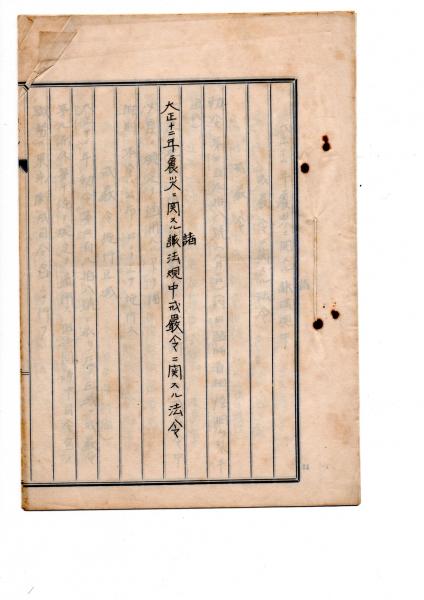 大正十二年震災ニ関スル諸法規中戒厳令ニ関スル法令